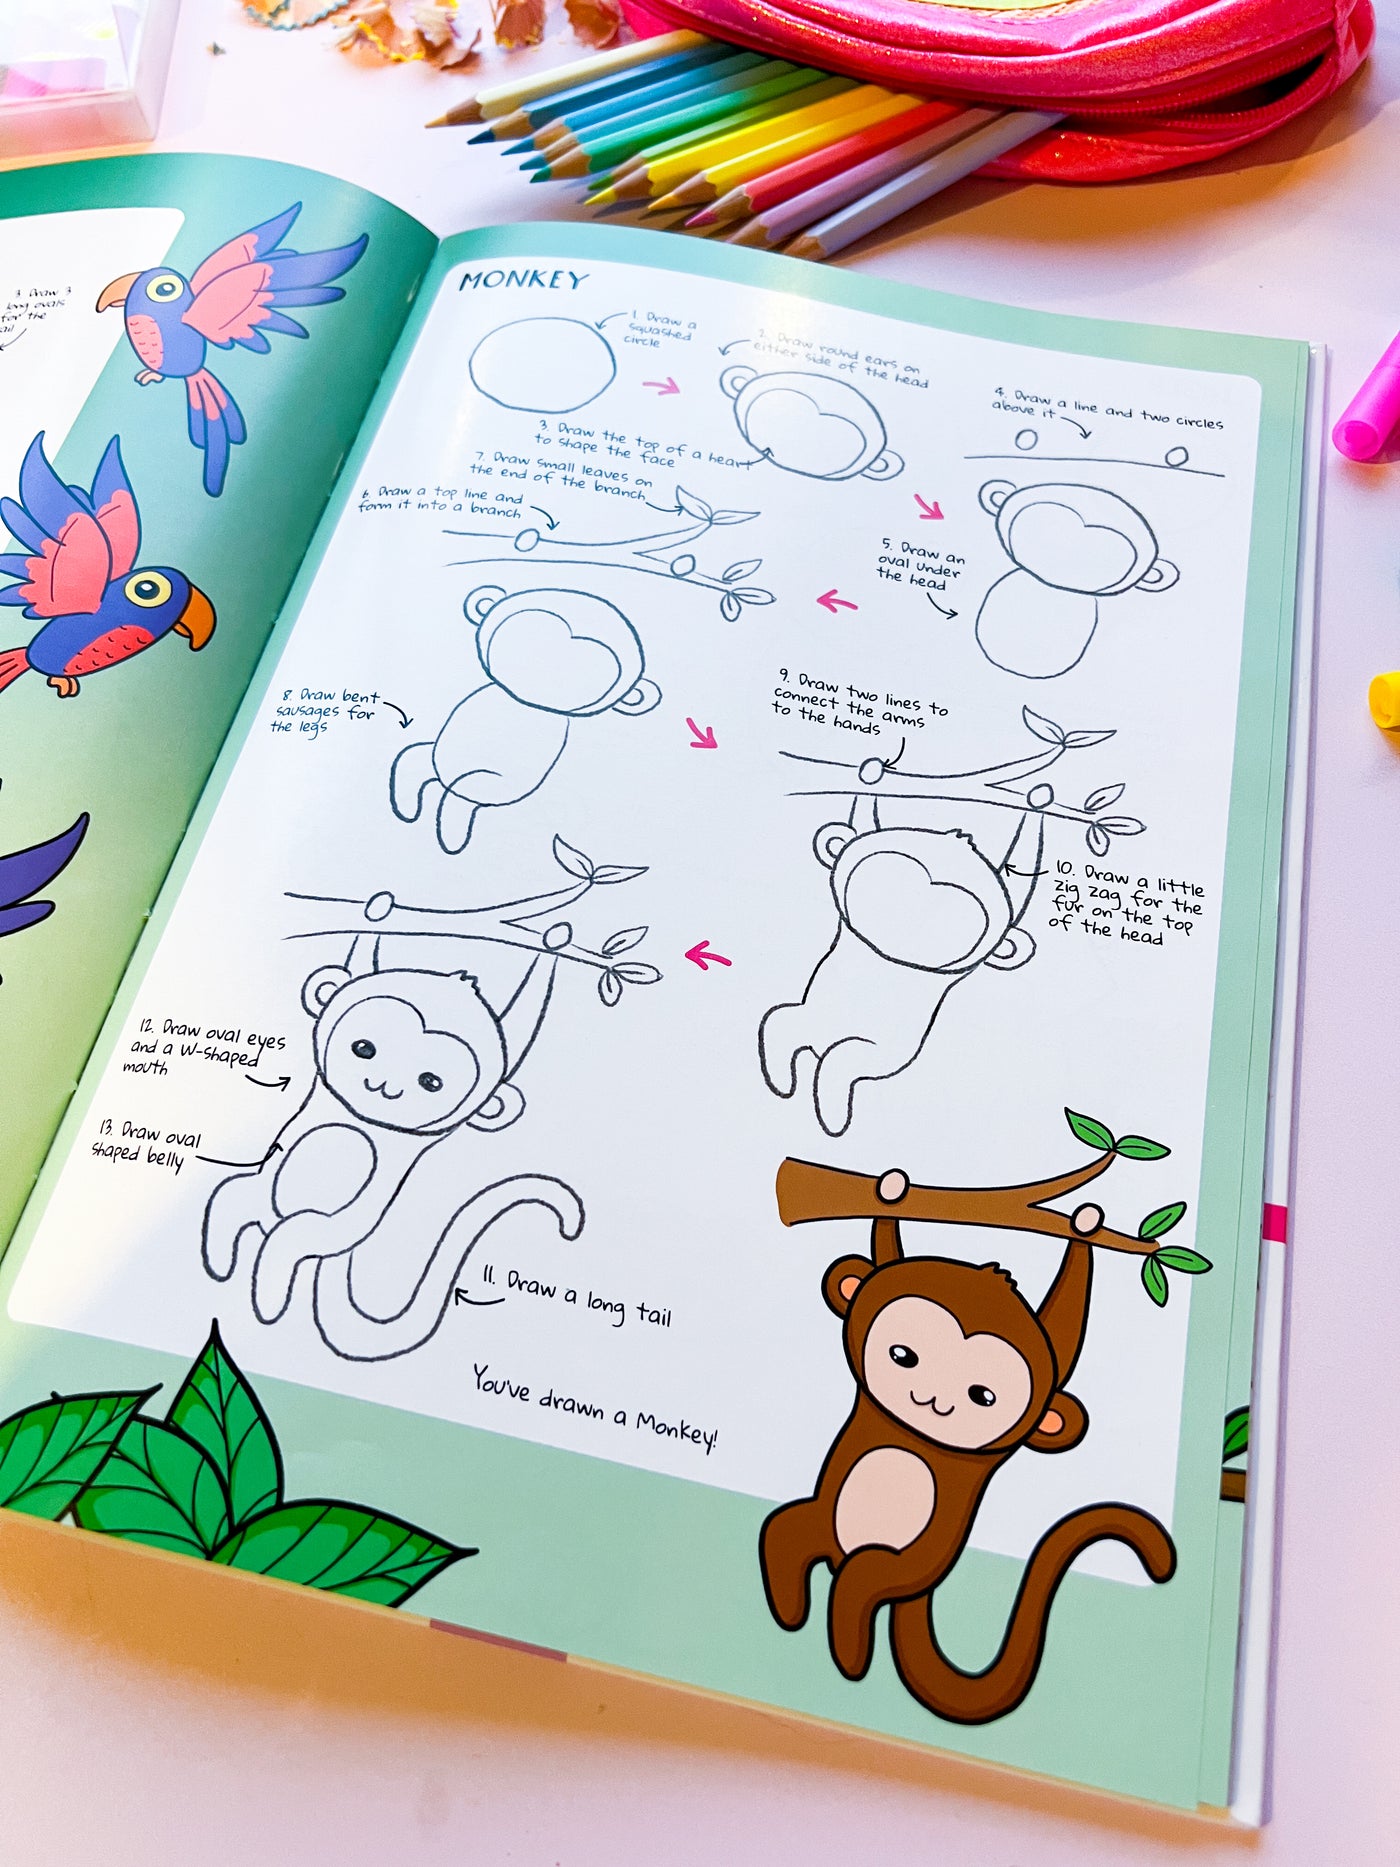 3. Draw 3
long ovals
for the
MONKEY
1. Draw a
squashed
circle
2. Draw round ears on
either side of the head
3. Draw the top of a heart
to shape the face
4. Draw a line and two circles
above it
5. Draw an
oval under
the head
6. Draw a top line and
form it into a branch
7. Draw small leaves on
the end of the branch
8. Draw bent
sausages for
the legs
9. Draw two lines to
connect the arms
to the hands
10. Draw a little
zig zag for the
fur on the top
of the head
12. Draw oval eyes
and a W-shaped
mouth
13. Draw oval
shaped belly
11. Draw a long tail
You've drawn a Monkey!